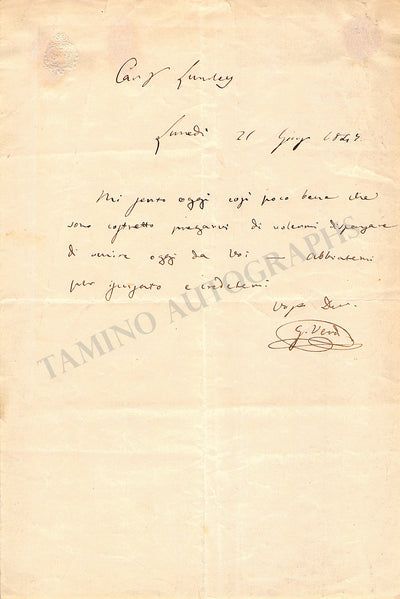 Car Lumley
Lunedì 21 Giug 1847.
Mi sento oggi così poco bene che
sono costretto pregarvi di volermi dispensare
di venire oggi da Voi — Abbiatemi
per iscusato e credetemi
Vos Dev.
G. Verdi
TAMINO AUTOGRAPHS